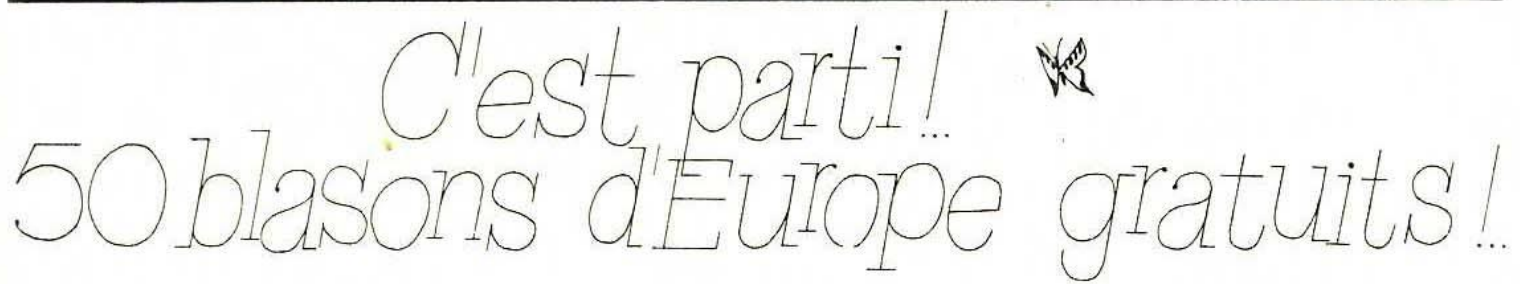 C'est parti!...
50 blasons d'Europe gratuits!...